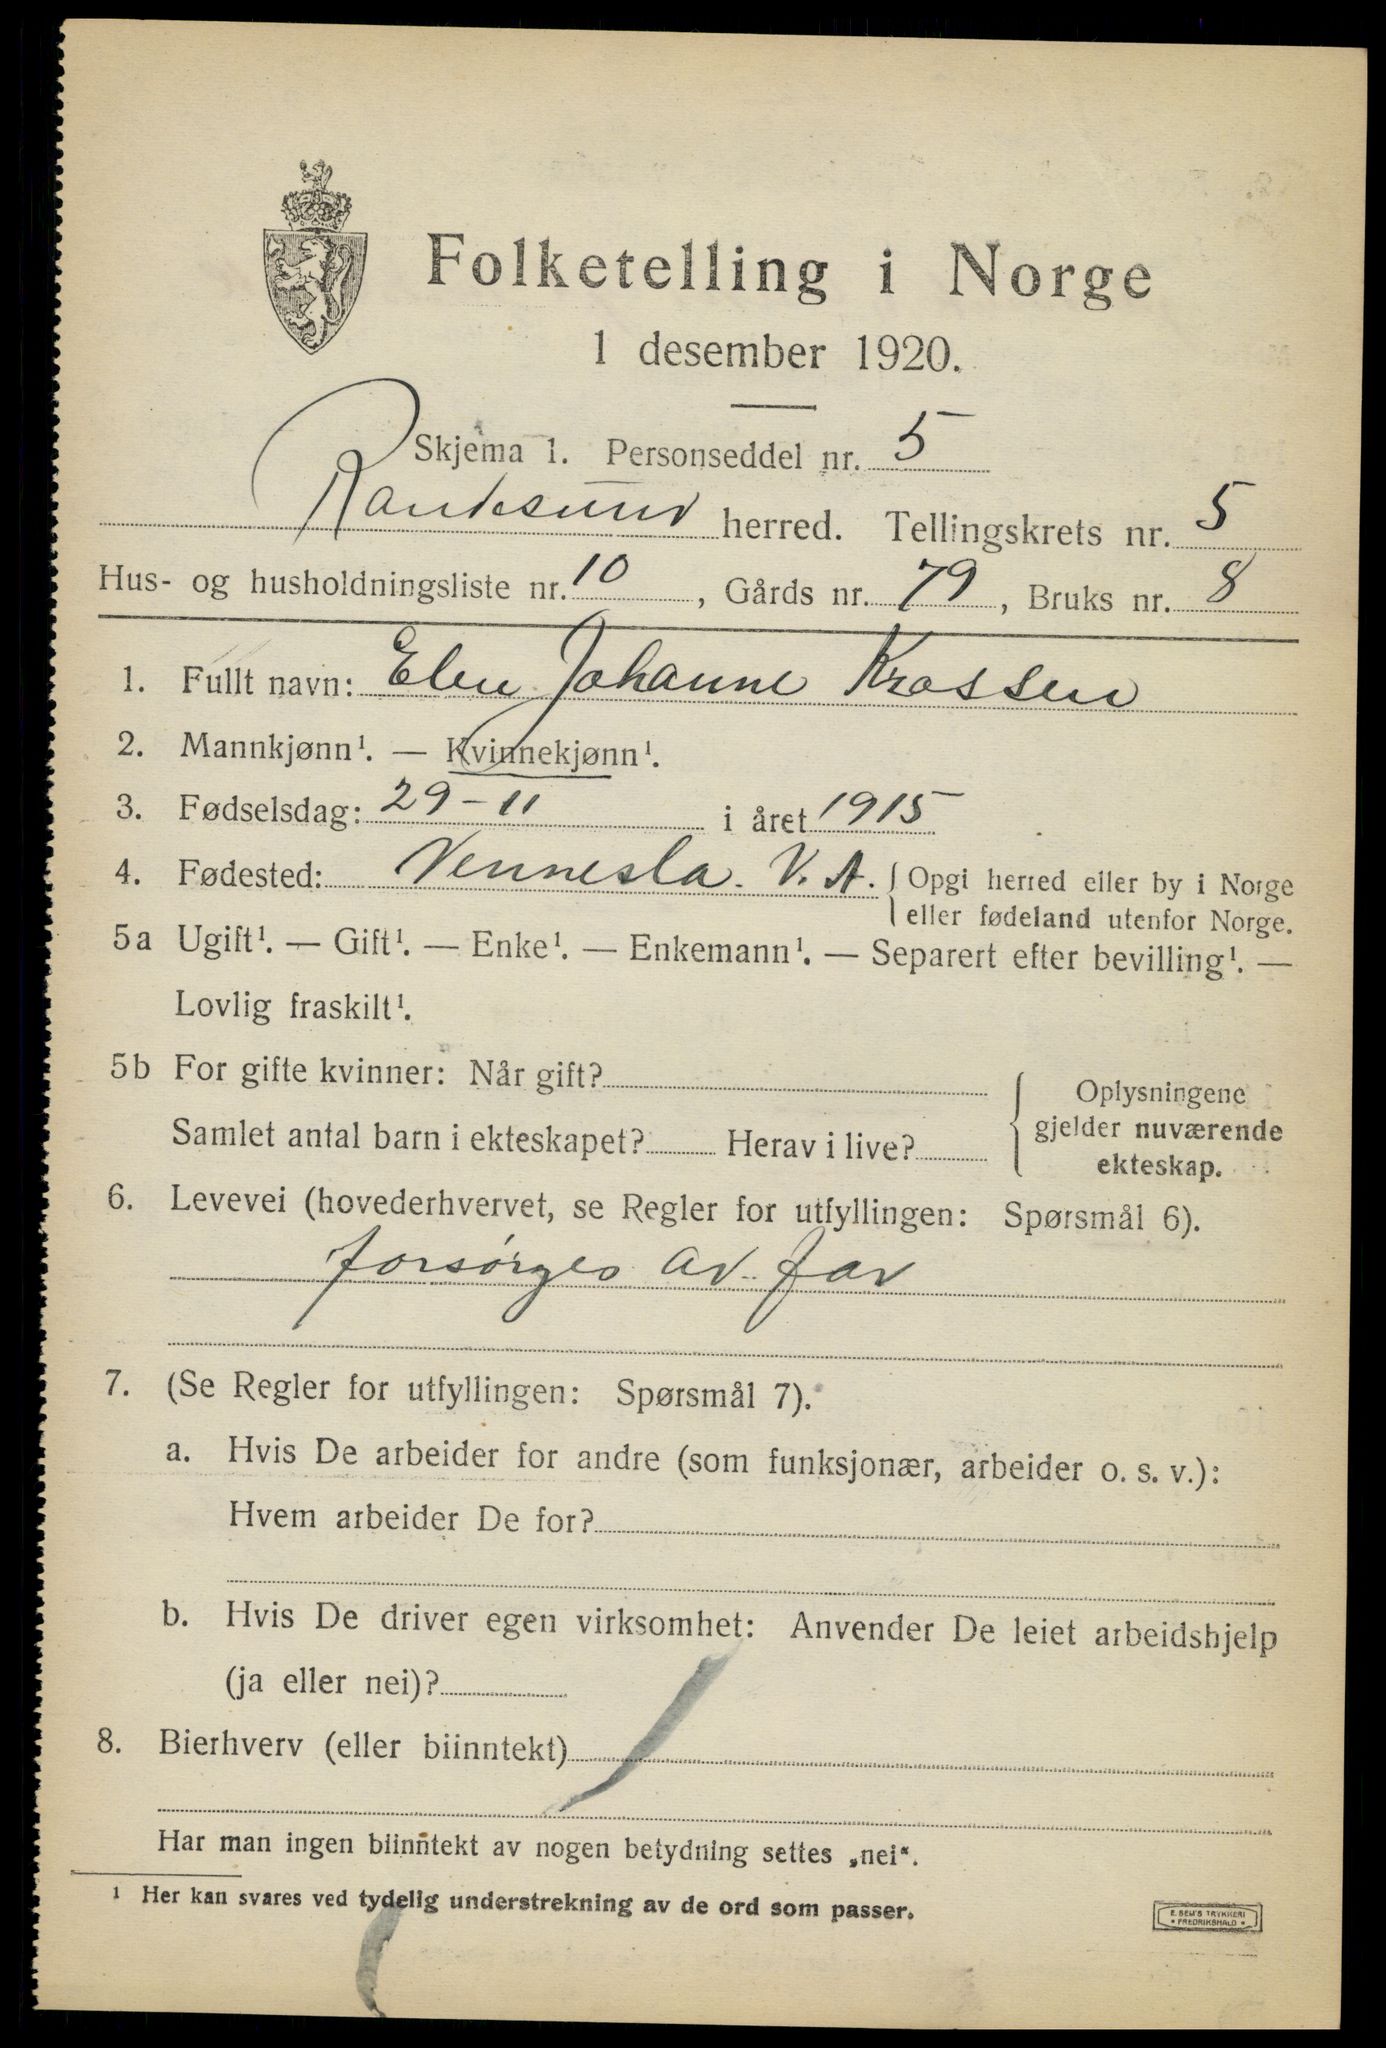 Folketelling i Norge
1 desember 1920.
Skjema 1. Personseddel nr. 5
Randesund herred. Tellingskrets nr. 5
Hus- og husholdningsliste nr. 10, Gårds nr. 79, Bruks nr. 8
1. Fullt navn: Elen Johanne Krossen
2. Mannkjønn¹. — Kvinnekjønn¹.
3. Fødselsdag: 29-11 i året 1915
4. Fødested: Vennesla. V. A. { Opgi herred eller by i Norge
eller fødeland utenfor Norge.
5a Ugift¹. — Gift¹. — Enke¹. — Enkemann¹. — Separert efter bevilling¹. —
Lovlig fraskilt¹.
5b For gifte kvinner: Når gift?
Samlet antal barn i ekteskapet? Herav i live?
Oplysningene
gjelder nuværende
ekteskap.
6. Levevei (hovederhvervet, se Regler for utfyllingen: Spørsmål 6).
forsørges av far
7. (Se Regler for utfyllingen: Spørsmål 7).
a. Hvis De arbeider for andre (som funksjonær, arbeider o. s. v.):
Hvem arbeider De for?
b. Hvis De driver egen virksomhet: Anvender De leiet arbeidshjelp
(ja eller nei)?
8. Bierhverv (eller biinntekt)
Har man ingen biinntekt av nogen betydning settes „nei“.
¹ Her kan svares ved tydelig understrekning av de ord som passer.
E. SEM'S TRYKKERI
• FREDRIKSHALD •